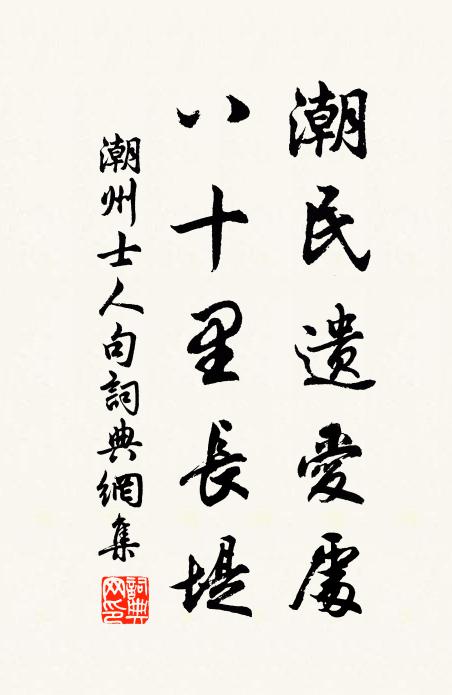 潮民遺愛處
八十里長堤
潮州士人句詞典網集
詞典網印